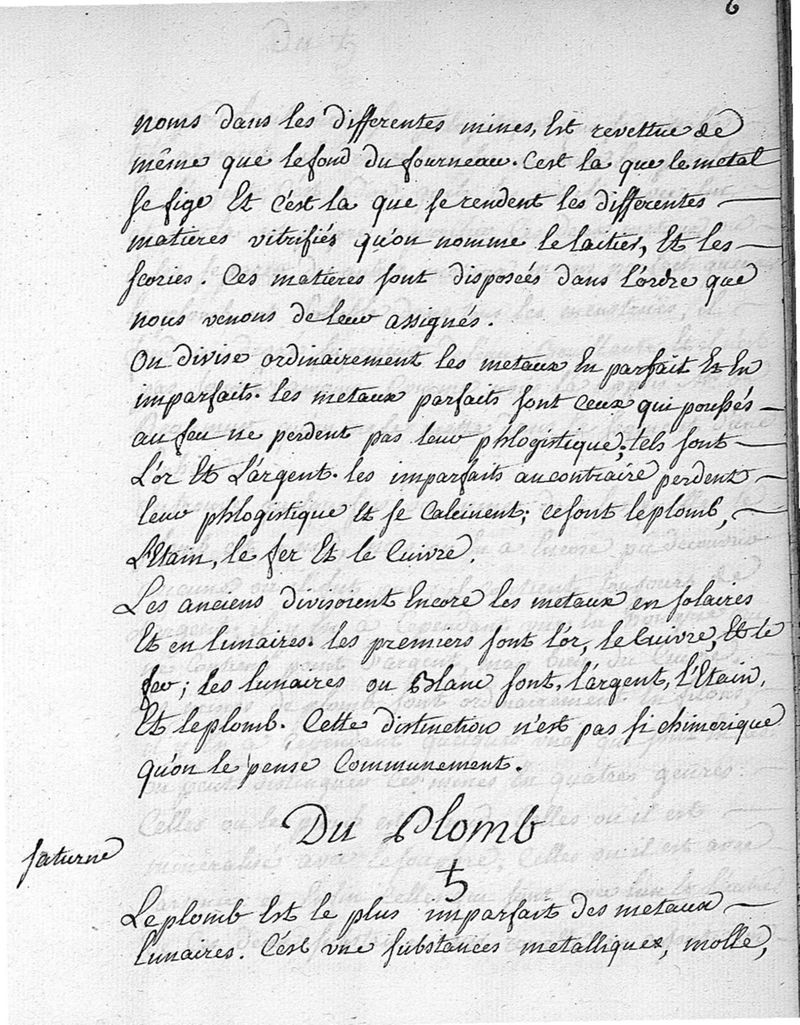 6
noms dans les differentes mines, Est revettue de
même que le fond du fourneau. C'est la que le metal
se fige Et c'est la que se rendent les differentes
matieres vitrifiés qu'on nomme le laitier, Et les
scories. Ces matieres sont disposées dans l'ordre que
nous venons de leur assignés.
On divise ordinairement les metaux En parfait Et En
imparfaits. les metaux parfaits sont ceux qui poussés
au feu ne perdent pas leur phlogistique; tels sont
L'or Et L'argent. les imparfaits au contraire perdent
leur phlogistique Et se Calcinent; ce sont le plomb,
L'Etain, le fer Et le Cuivre.
Les anciens divisoient Encore les metaux en solaires
Et en lunaires. les premiers sont l'or, le Cuivre, Et le
fer; les lunaires ou Blanc sont, l'argent, l'Etain,
Et le plomb. Cette distinction n'est pas si chimerique
qu'on le pense Communement.
Du Plomb
saturne
♄
Le plomb Est le plus imparfait des metaux
lunaires. C'est une substances metalliques, molle,